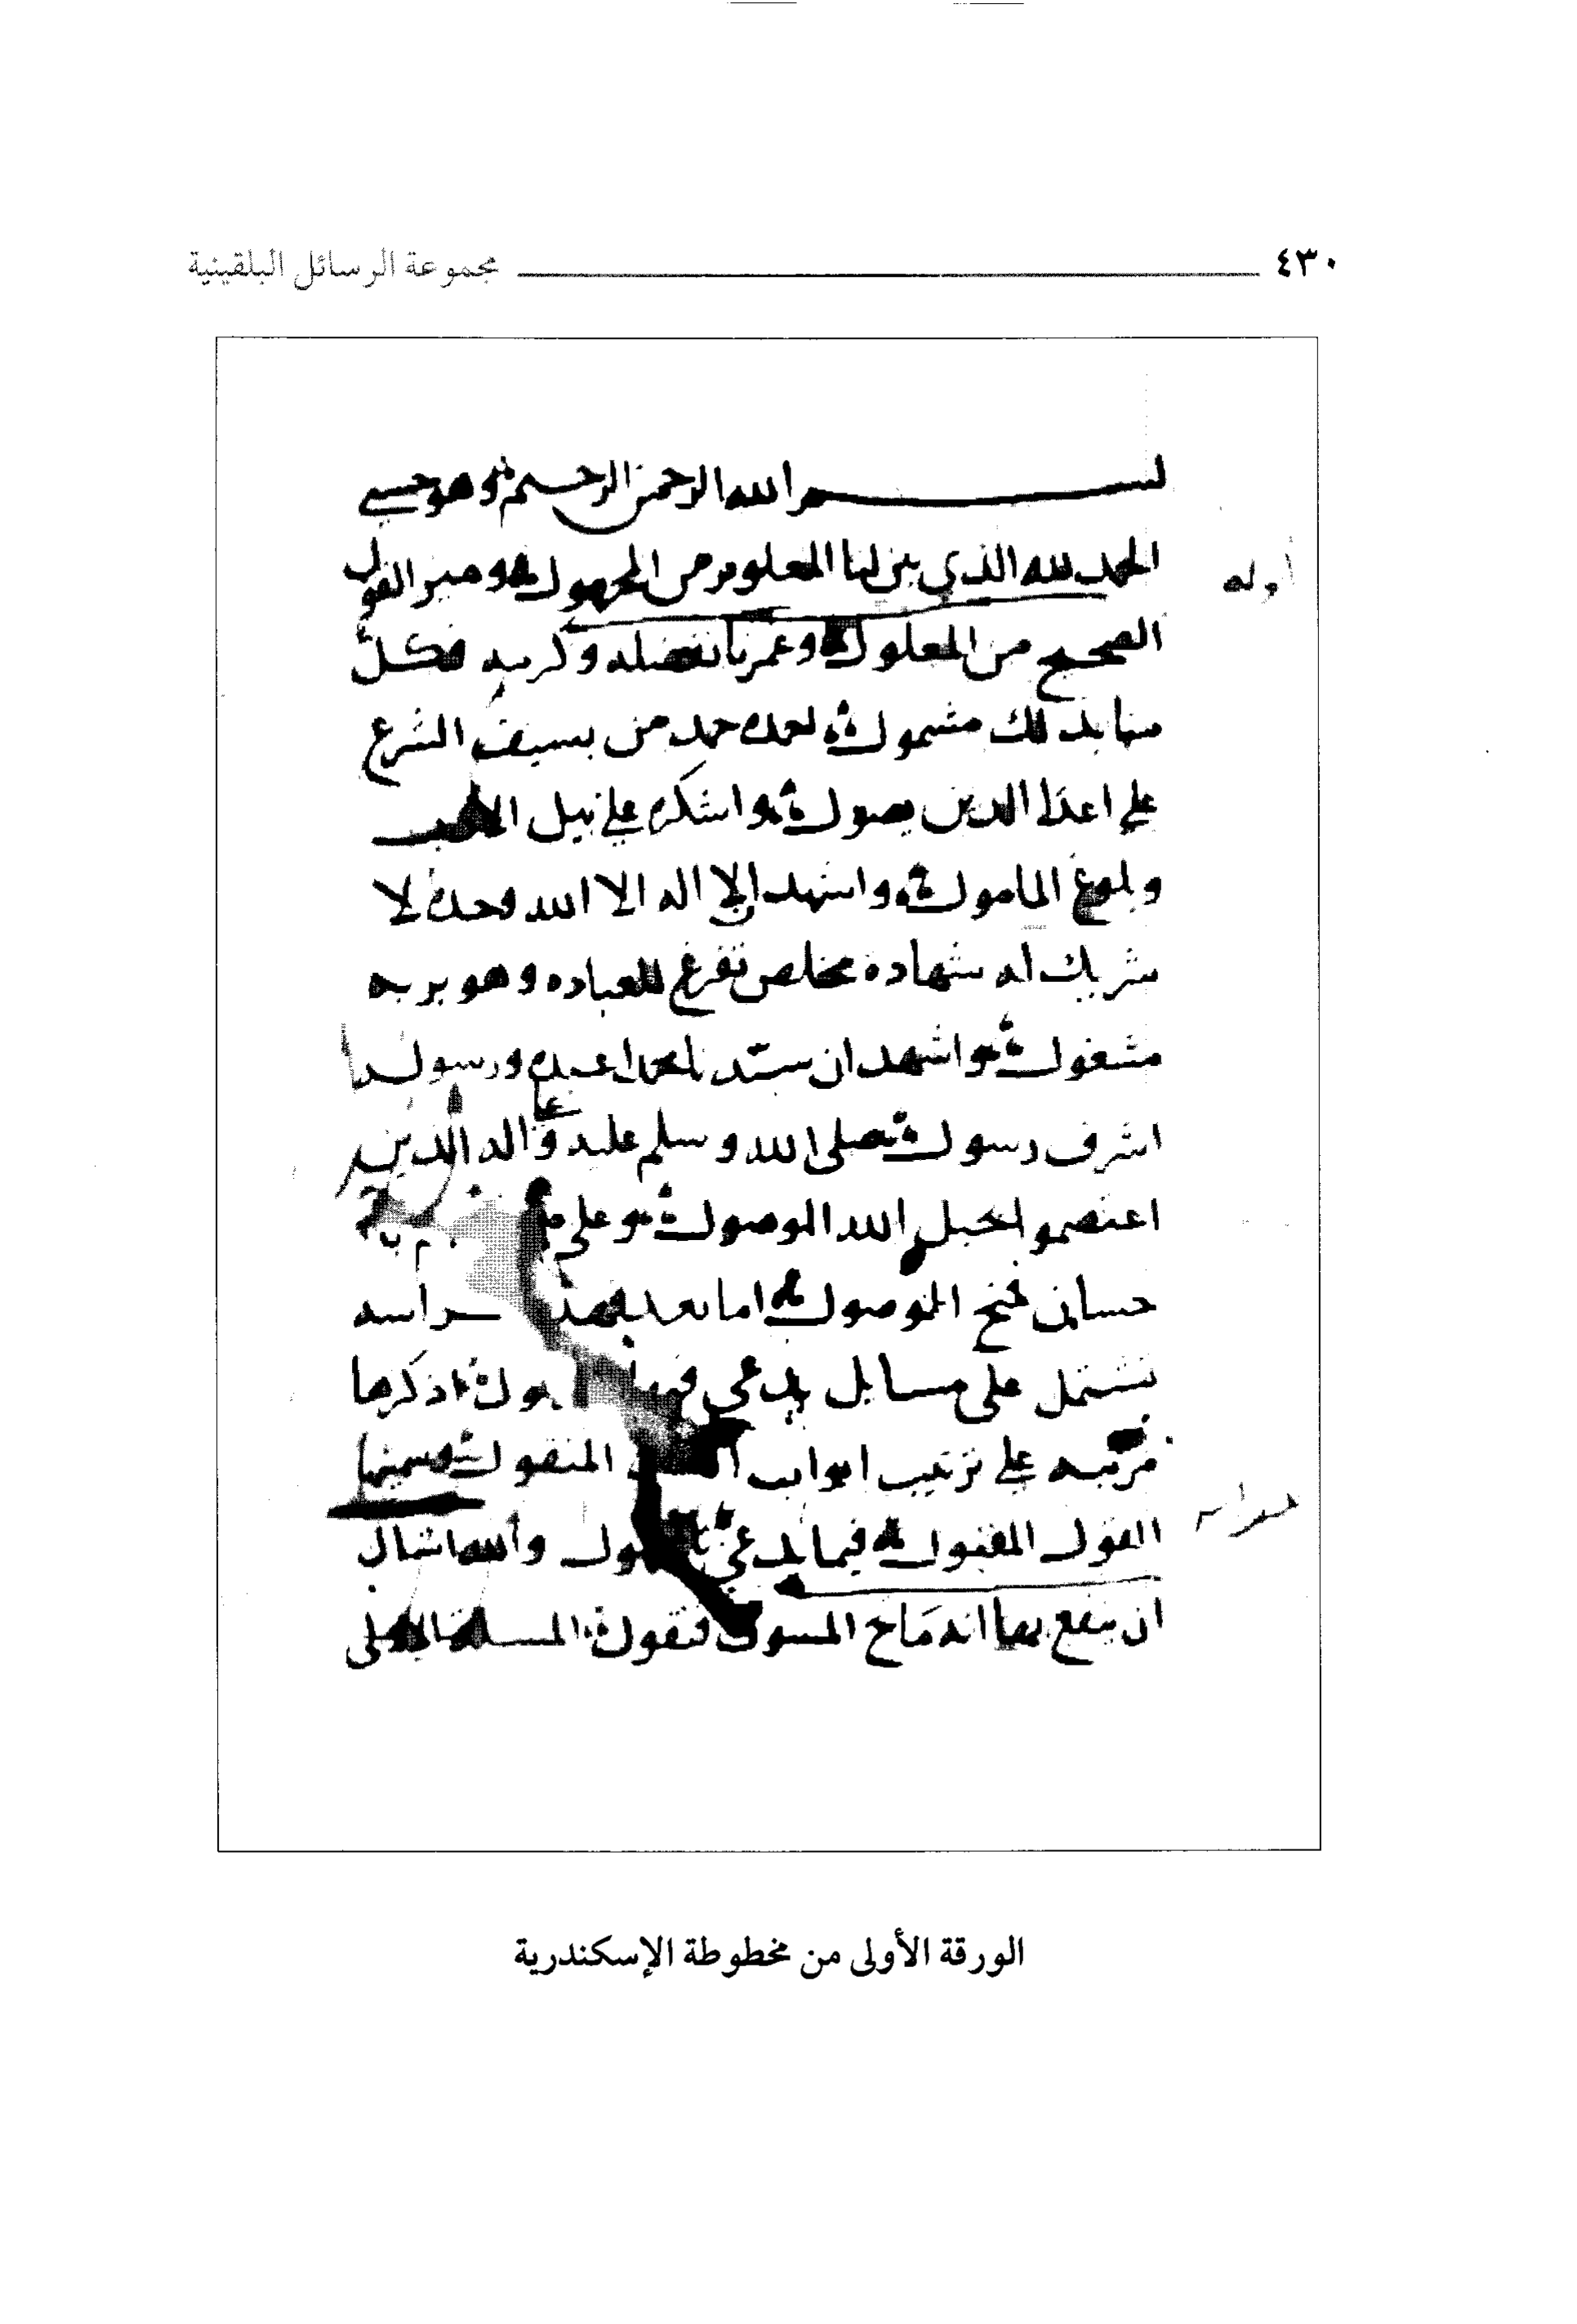 ٤٣٠ مجموعة الرسائل البلقينية
بسم الله الرحمن الرحيم وهو حسبي
الحمد لله الذي بين لنا المعلوم من المجهول وميز القول
أوله
الصحيح من المعلول وغمرنا بفضله وكرمه فكل
منا بذلك مشمول احمده حمد من بسيف الشرع
على اعدا الدين يصول واشكره على نيل
وبلوغ المامول واشهد ان لا اله الا الله وحده لا
شريك له شهادة مخلص تفرغ للعباده وهو بربه
مشغول واشهد ان سيدنا محمدا عبده ورسوله
اشرف رسول صلى الله وسلم عليه وعلى اله الذين
اعتصموا بحبل الله الموصول وعلى
اما بعد فهذه
تشتمل على مسايل يدعى فيها اذكرها
مرتبه على ترتيب ابواب المنقول وسميتها
القول المقبول فيما يدعى والله اسال
ان ينفع بها انه فنقول المسلة الاولى
الورقة الأولى من مخطوطة الإسكندرية